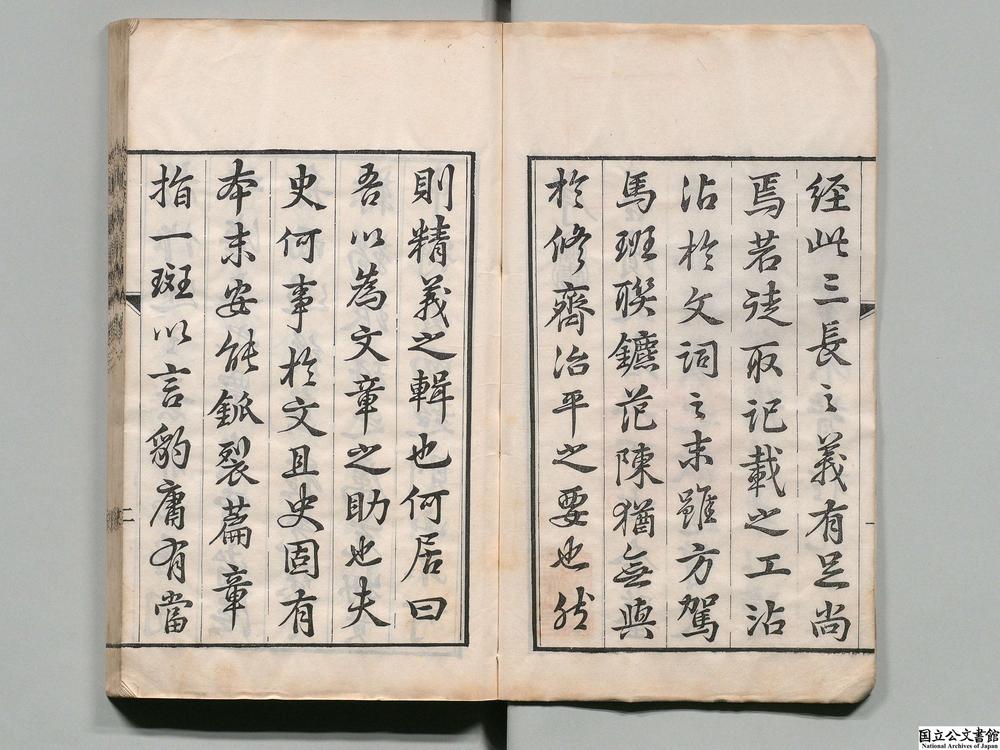 経此三長之義有足尚
焉若徒取記載之工沾
沾於文詞之末雖方駕
馬班聯鑣范陳猶無與
於修齊治平之要也然
則精義之輯也何居曰
吾以為文章之助也夫
史何事於文且史固有
本末安能鈲裂篇章
指一斑以言豹庸有當
二
国立公文書館
National Archives of Japan